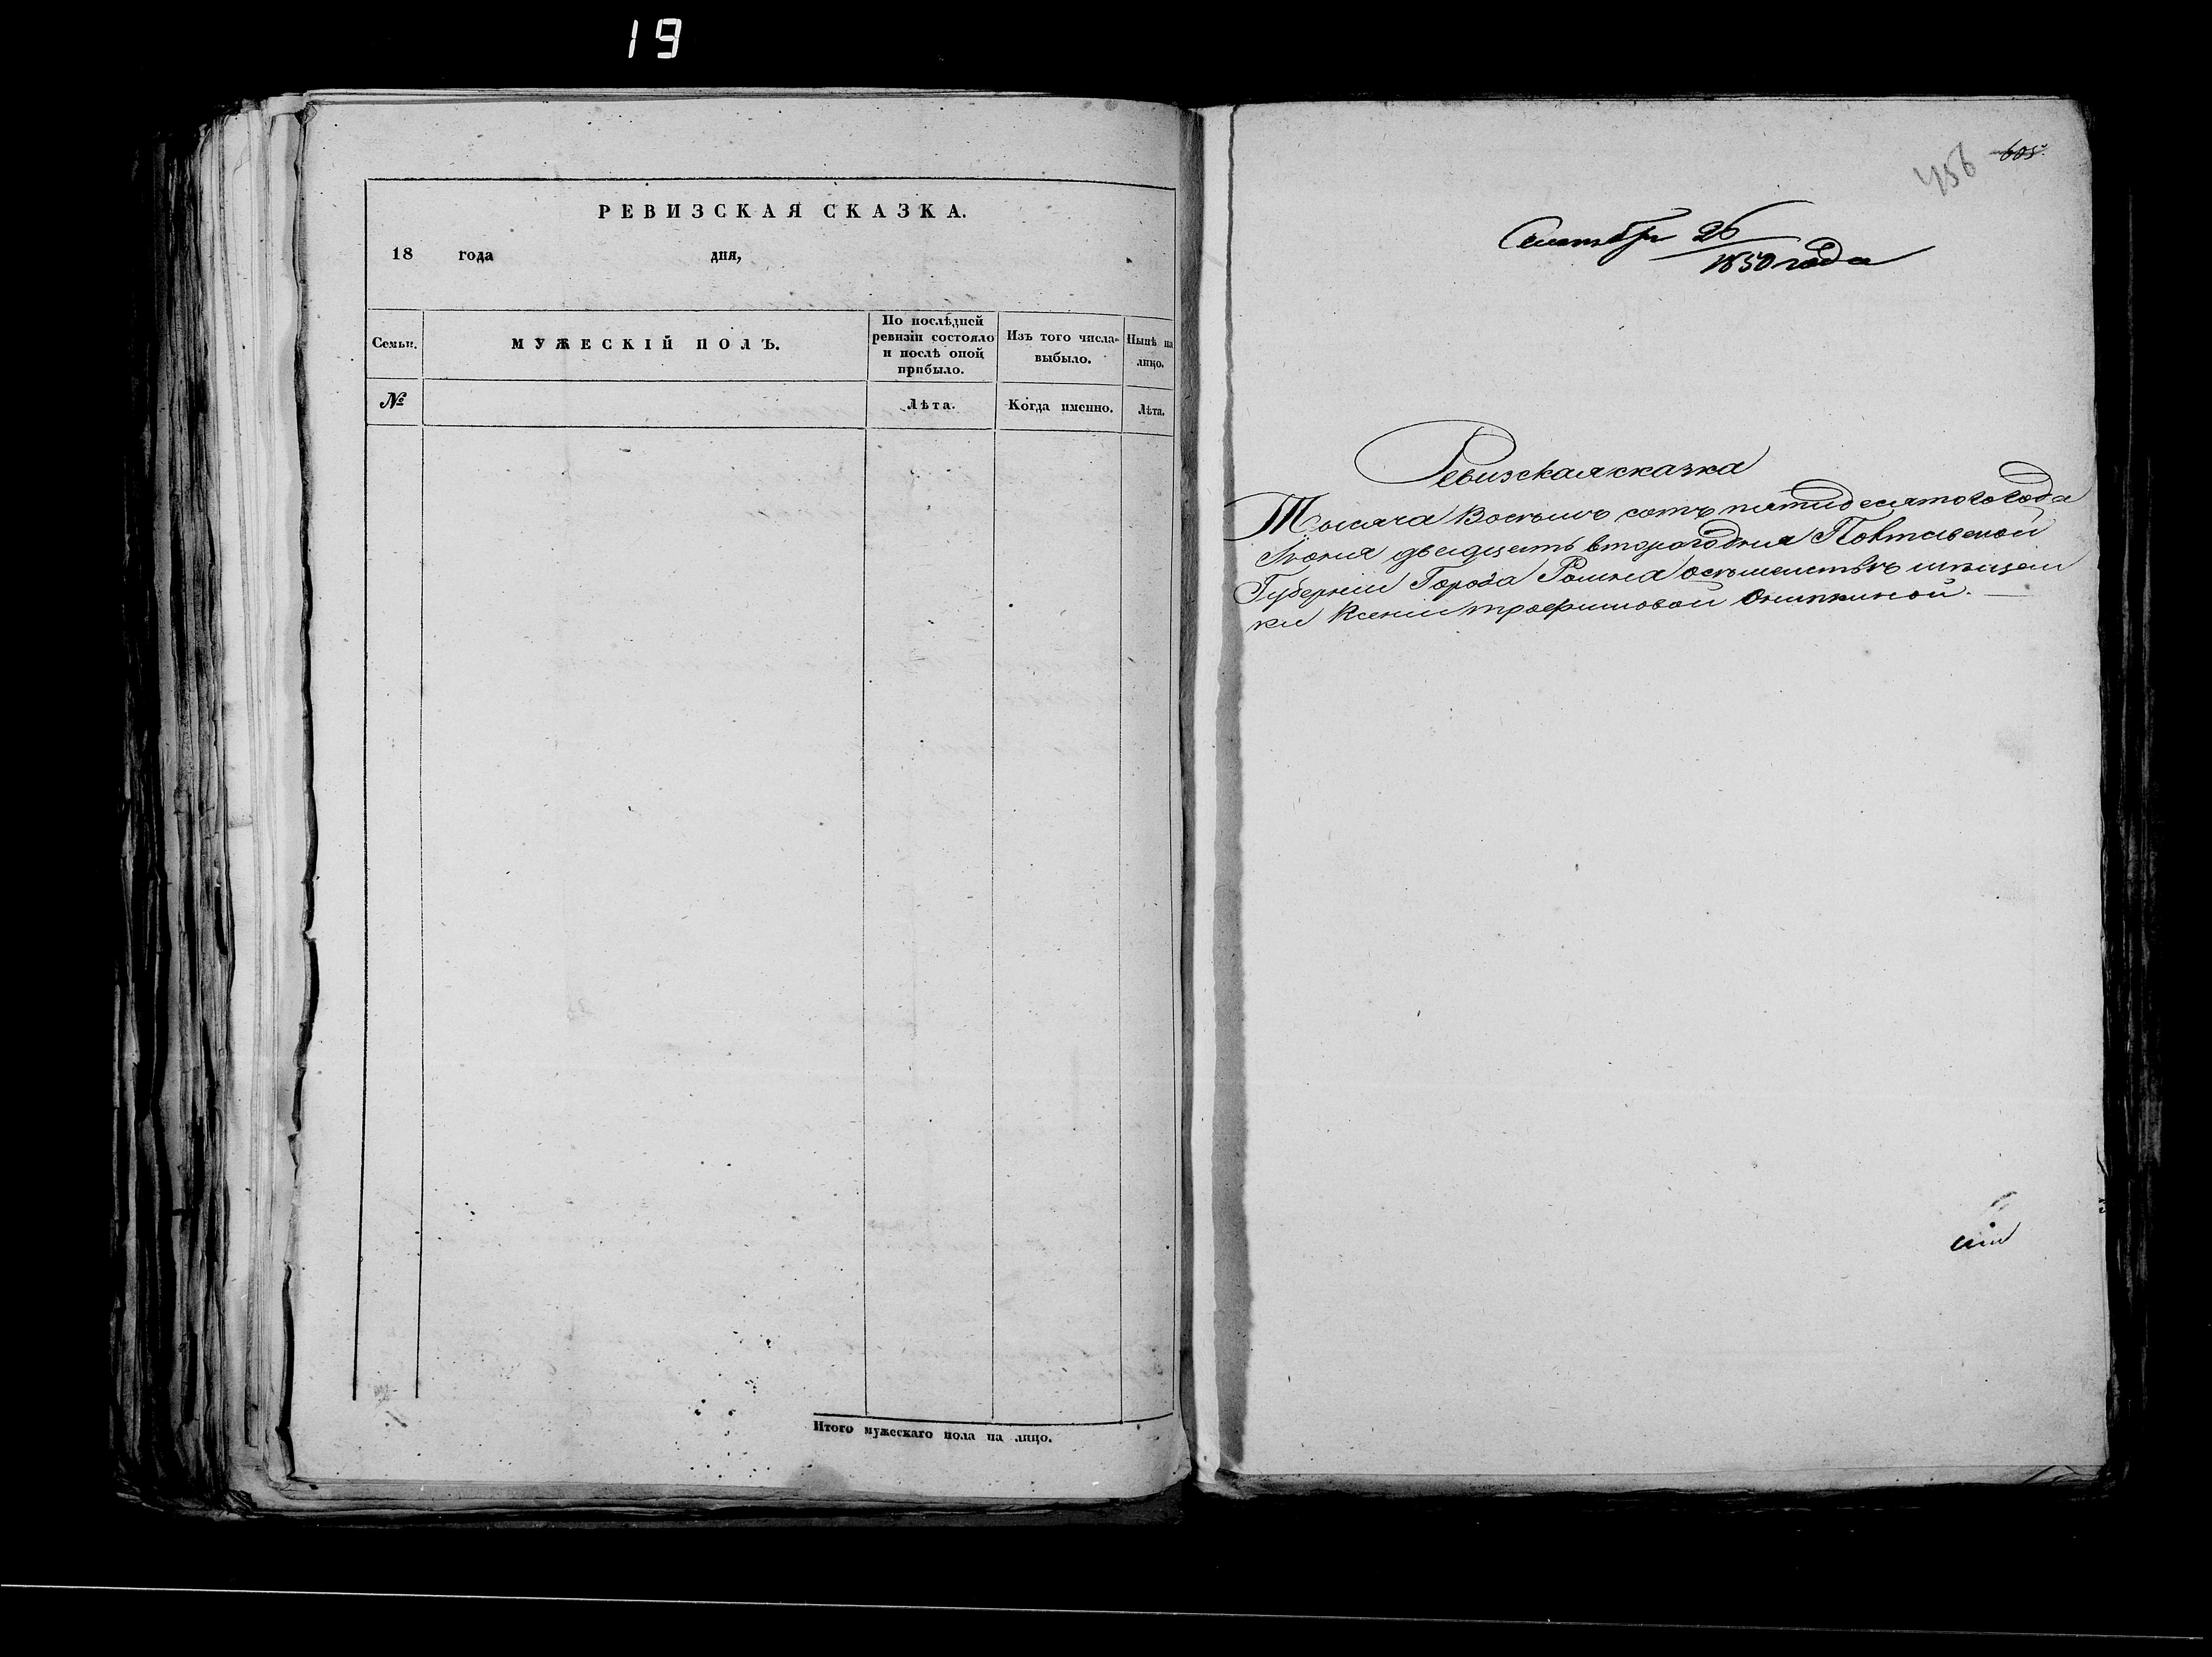 19
РЕВИЗСКАЯ СКАЗКА.
18 года дня,
Семьи.
МУЖЕСКІЙ ПОЛЪ.
По послѣдней
ревизіи состояло
и послѣ оной
прибыло.
Изъ того числа
выбыло.
Нынѣ на
лицо.
№
Лѣта.
Когда именно.
Лѣта.
Итого мужескаго пола на лицо.
456 605
Сентября 26
1850 года
Ревизская сказка
Тысяча восемь сотъ пятидесятого года
Іюня двадцать второго дня Полтавской
Губерніи Города Ромна
ки Ксении трофимовой Онипкиной.